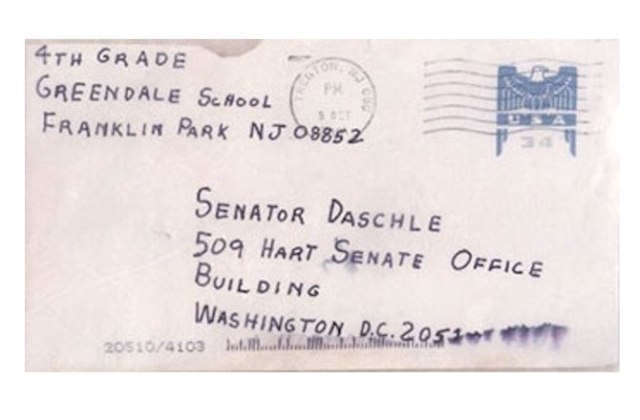 4TH GRADE
GREENDALE SCHOOL
FRANKLIN PARK NJ 08852
TRENTON, NJ
PM
USA
34
SENATOR DASCHLE
509 HART SENATE OFFICE
BUILDING
WASHINGTON D.C.
20510/4103